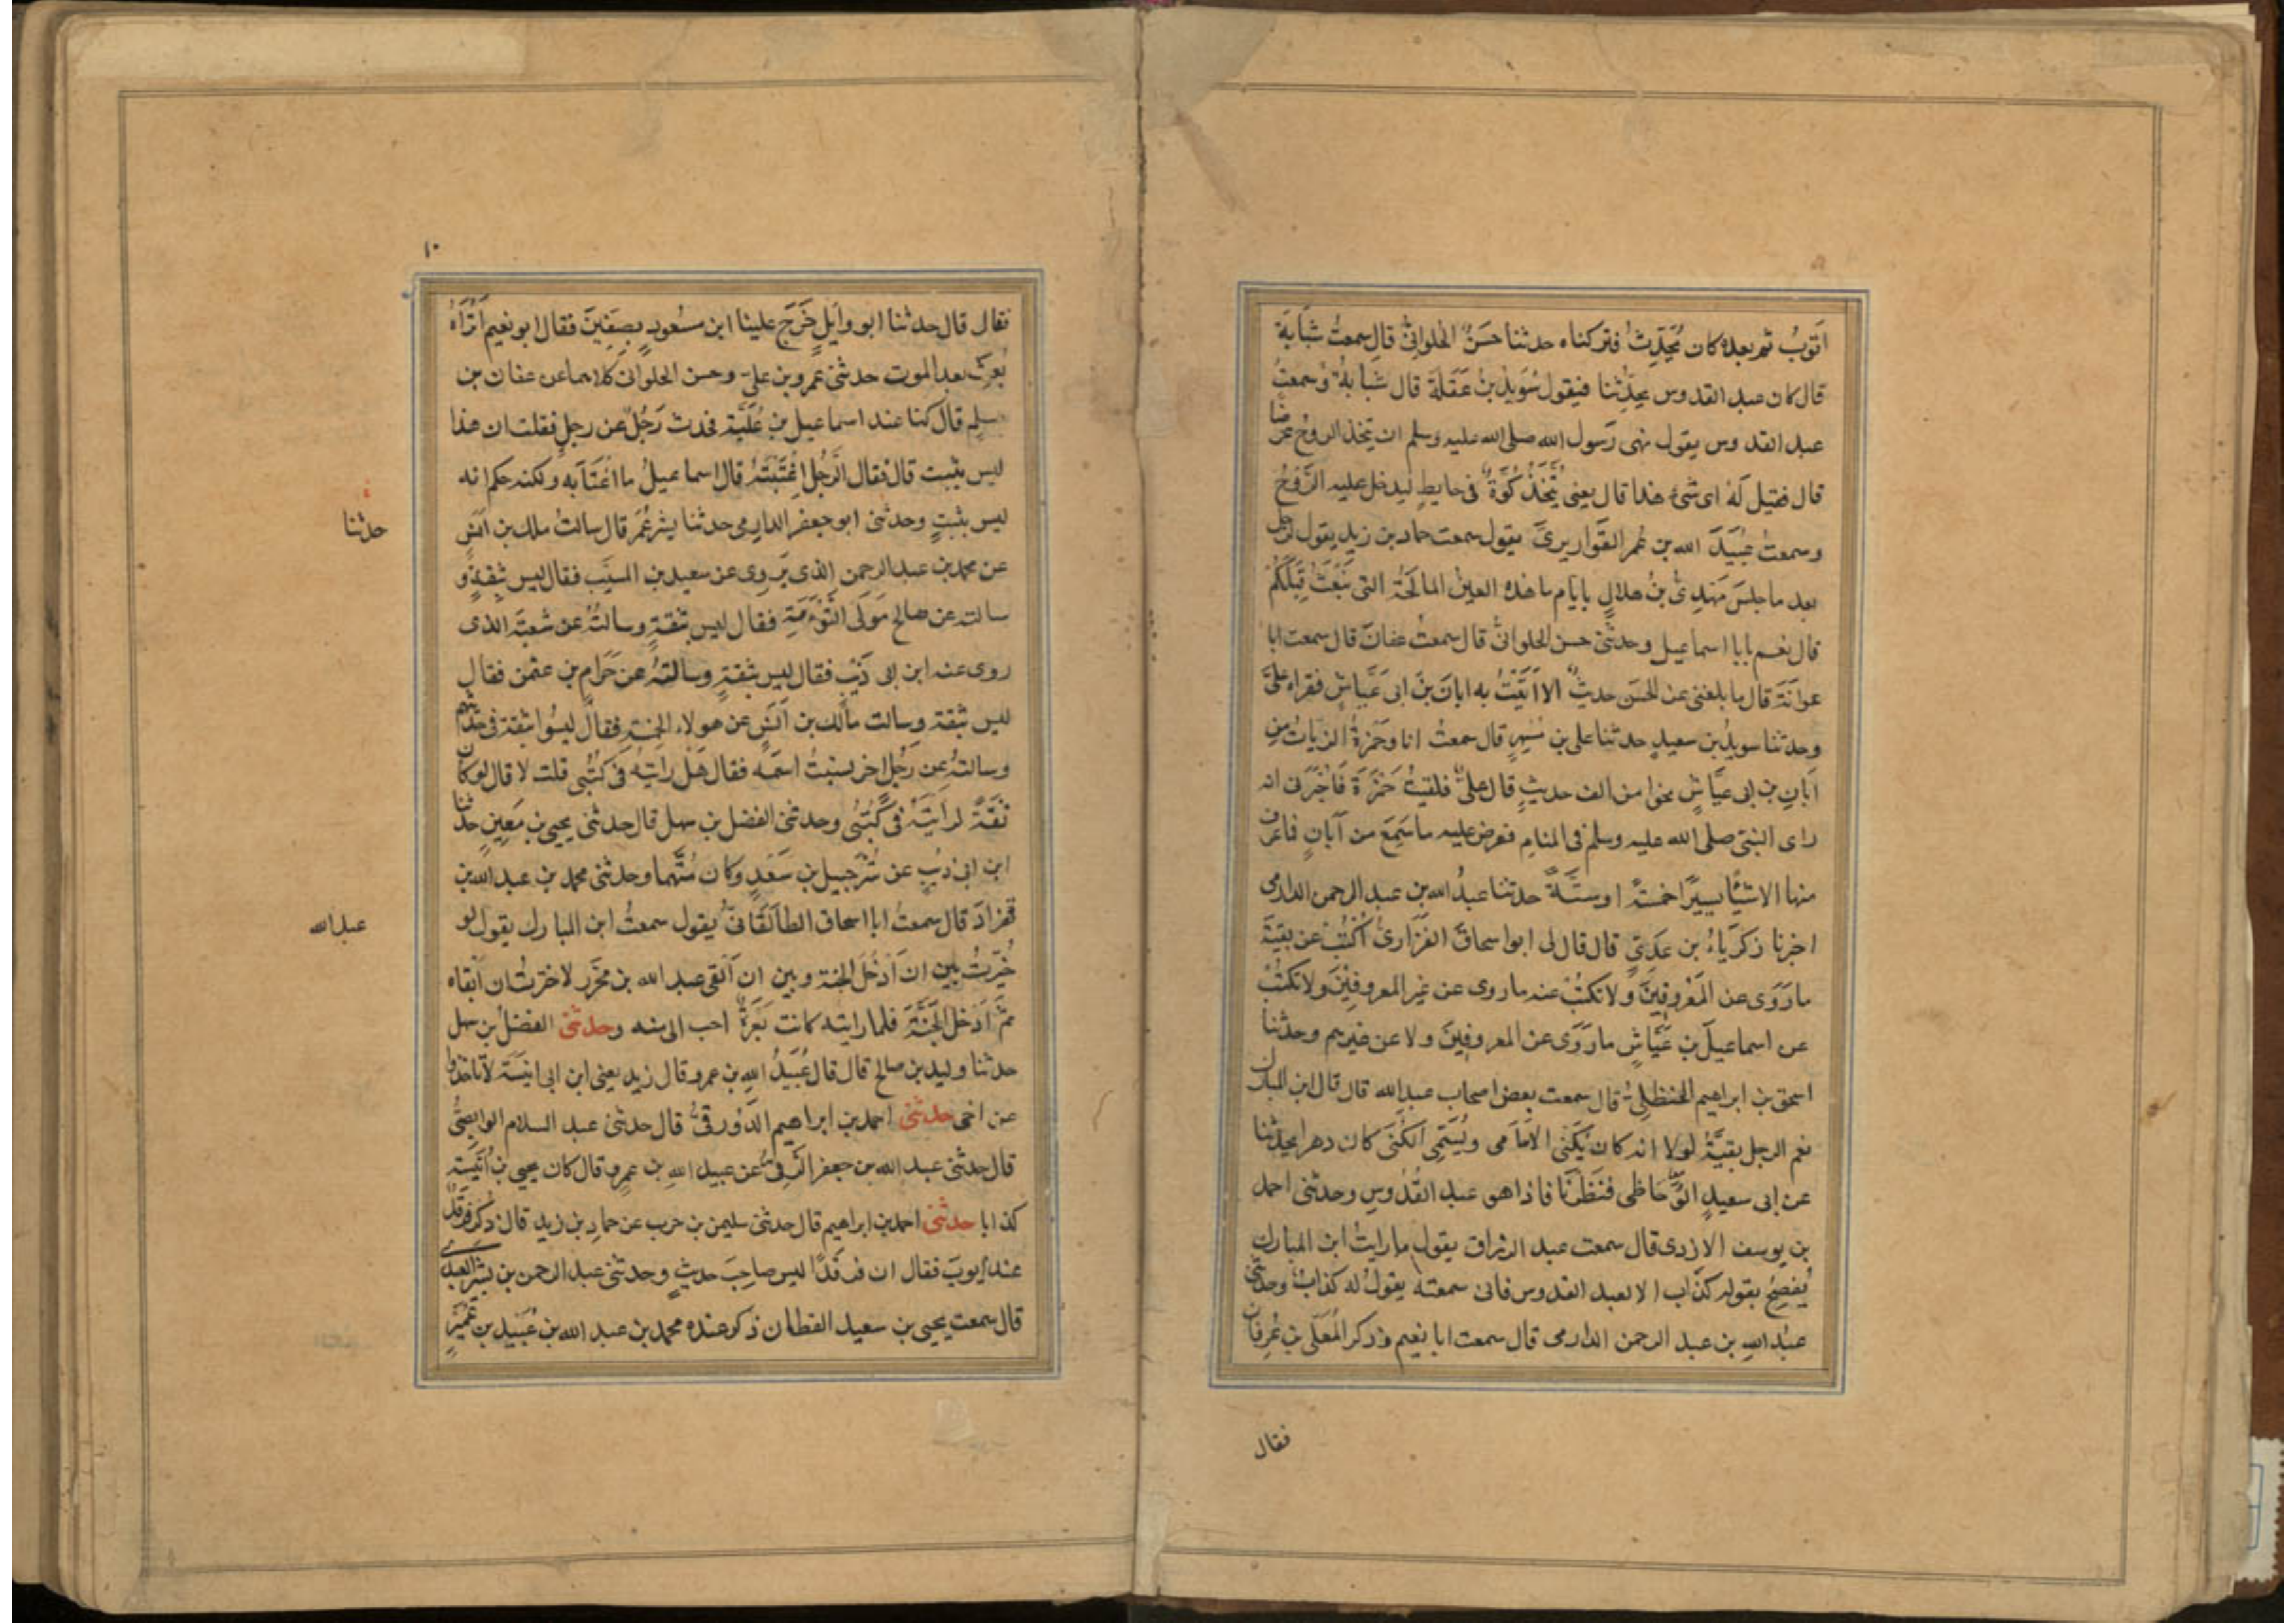 اتوبُ ثم بعده كان يُحَدِّثُ فتركناه حدثنا حسَنٌ الحلوانىُّ قال سمعتُ شبابَةَ
قال كان عبد القدوس يحدِّثنا فيقول سُوَيدُ بنُ عَقَلَةَ قال شبابةُ وسمعتُ
عبد القدوس يقول نهى رسول الله صلى الله عليه وسلم ان يتخذ الروحُ عرضًا
قال فقيل لَهُ اى شئ هذا قال يعنى يُتَّخَذُ كُوَّةٌ فى حايطٍ ليدخل عليه الرَّوْحُ
وسمعتُ عُبَيدَ الله بن عُمر القَواريرىَّ يقول سمعت حماد بن زيدٍ يقول لرجل
بعد ما جلسَ مَهدىُّ بنُ هلالٍ بايّام ما هذه العين المالحَةُ التى نَبَعَتْ قِبَلَكُمْ
قال نعم يا با اسماعيل وحدثنى حسن الحلوانىُّ قال سمعتُ عفانَ قال سمعت ابا
عوانَةَ قال ما بلغنى عن الحسَن حديثٌ الا اَتَيْتُ به ابانَ بنَ ابى عَيَّاشٍ فقراه علىَّ
وحدثنا سويدُ بن سعيدٍ حدثنا على بن مُسْهِرٍ قال سمعتُ انا وحَمْزةُ الزيات من
اَبانِ بن ابى عَيَّاشٍ نحوا من الف حديثٍ قال علىٌّ فلقيتُ حَمْزَةَ فَاَخْبَرَنى انه
راى النبىّ صلى الله عليه وسلم فى المنام فعرض عليه ما سَمِعَ من اَبانٍ فما عرف
منها الا شَيْئًا يسيرًا خمسَةً او سِتَّةً حدثنا عبدُ الله بن عبد الرحمن الدارمى
اخبرنا زكرَيّاءُ بن عَدىٍّ قال قال لى ابو اسحاقَ الفَزارىُّ اُكْتُبْ عن بقيَّةَ
ما رَوَى عن المَعْروفِيْنَ ولا تكتُبْ عنه ما روى عن غير المعروفِيْنَ ولا تكتُبْ
عن اسماعيلَ بن عَيَّاشٍ ما رَوَى عن المعروفينَ ولا عن غيرهم وحدثنا
اسحق بن ابراهيم الحنظلىُّ قال سمعت بعض اصحاب عبدِ الله قال قال ابن المبارك
نعم الرجل بقيَّةُ لولا انه كان يَكْنى الاَسَامى ويُسَمِّى الكُنَى كان دهرا يحدّثنا
عن ابى سعيدٍ الوُحَاظى فنَظَرْنَا فاذا هو عبد القُدُّوسِ وحدثنى احمد
بن يوسف الازدى قال سمعت عبد الرزاق يقول ما رايتُ ابن المبارك
يُفصِحُ بقوله كذّاب الا لعبد القدوس فانى سمعته يقولُ له كذابٌ وحدثنى
عبدُ اللهِ بن عبد الرحمن الدارمى قال سمعت ابا نعيمٍ وذكر المُعَلَّى بن عُرفان
فقال
١٠
فقال قال حدثنا ابو وايلٍ خَرَجَ علينا ابن مسْعودٍ بصِفِّينَ فقال ابو نعيم اَتُرَاهُ
بُعِثَ بعد الموت حدثنى عمرو بن علىّ وحسن الحلوانى كلاهما عن عفان بن
مسلم قال كنا عند اسماعيل بن عُلَيَّةَ فحدث رَجُلٌ عن رجلٍ فقلت ان هذا
ليس بثبت قال فقال الرَّجُل اِغْتَبْتَهُ قال اسماعيلُ ما اغْتَابَه ولكنه حكم انه
ليس بثبتٍ وحدثنى ابو جعفر الدارمى حدثنا بشر بن عُمَرَ قال سالتُ ملك بن اَنَسٍ
حدثنا
عن محمد بن عبد الرحمن الذى يَروِى عن سعيد بن المسيّب فقال ليس بثقةٍ و
سالته عن صالحٍ مَولَى التَّوْءَمَةِ فقال ليس بثقةٍ وسالتُهُ عن شعبَةَ الذى
روى عنه ابن ابى ذَيْبٍ فقال ليس بثقةٍ وسالتُهُ عن حَرَامِ بن عثمن فقال
ليس بثقة وسالت مالك بن اَنَسٍ عن هولاء الخمسةِ فقالَ ليسُوا بثقة فى حديثهم
وسالتُهُ عن رَجُلٍ اخر نسيتُ اسْمَهُ فقال هَلْ رايتَهُ فى كُتُبى قلت لا قال لو كان
ثقَةً لرايتَهُ فى كُتُبى وحدثنى الفضل بن سهل قال حدثنى يحيى بن مَعِينٍ حدثنا
ابن ابى ذيبٍ عن شُرَحبيل بن سَعْدٍ وكان مُتَّهما وحدثنى محمد بن عبد الله بن
قهزاذَ قال سمعتُ ابا اسحاق الطالَقَانىَّ يقول سمعتُ ابن المبارك يقول لو
عبد الله
خُيِّرتُ بين ان اَدْخُلَ الجنة وبين ان اَلْقى عبد الله بن محَرَّرٍ لاخترتُ ان اَلقاه
ثم اَدْخلَ الجَنَّةَ فلما رايته كانت بَعَرةٌ احب الىَّ منه وحدثنى الفضلُ بن سهل
حدثنا وليد بن صالح قال قال عُبَيدُ اللهِ بن عمرو قال زيد يعنى ابن ابى انيسَةَ لا تاخذوا
عن اخى حدثنى احمد بن ابراهيم الدَّوْرقىُّ قال حدثنى عبد السلام الوابِصىُّ
قال حدثنى عبد الله بن جعفر الرقىُّ عن عبيد اللهِ بن عمرٍو قال كان يحيى بن اُنَيْسةَ
كذابا حدثنى احمد بن ابراهيم قال حدثنى سليمن بن حرب عن حمادِ بن زيدٍ قال ذُكِرَ فَرقَدٌ
عند ايوبَ فقال ان فرقَدًا ليس صاحِبَ حديثٍ وحدثنى عبد الرحمن بن بشرٍ العبدى
قال سمعت يحيى بن سعيد القطان ذكر عنده محمد بن عبد الله بن عُبَيد بن عُمَيْرٍ